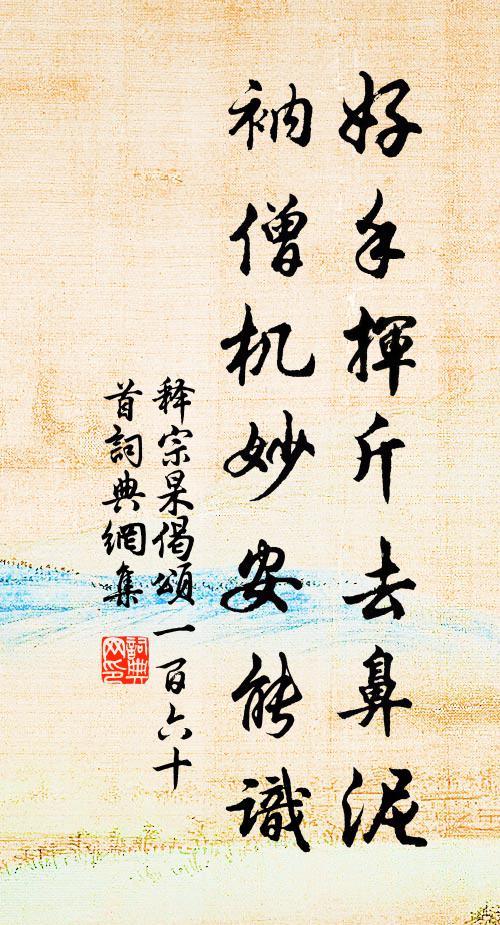 好手揮斤去鼻泥
衲僧机妙安能識
释宗杲偈頌一百六十
首詞典網集
詞典网印